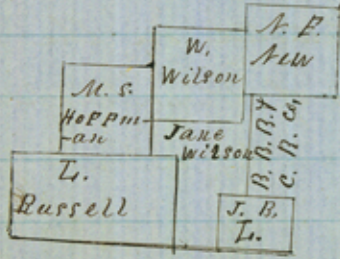 N. F.
New
W.
Wilson
M. S.
Hoffm
-an
Jane
Wilson
B. B. B. Y
C. R. Co,
L.
Russell
J. B.
L.